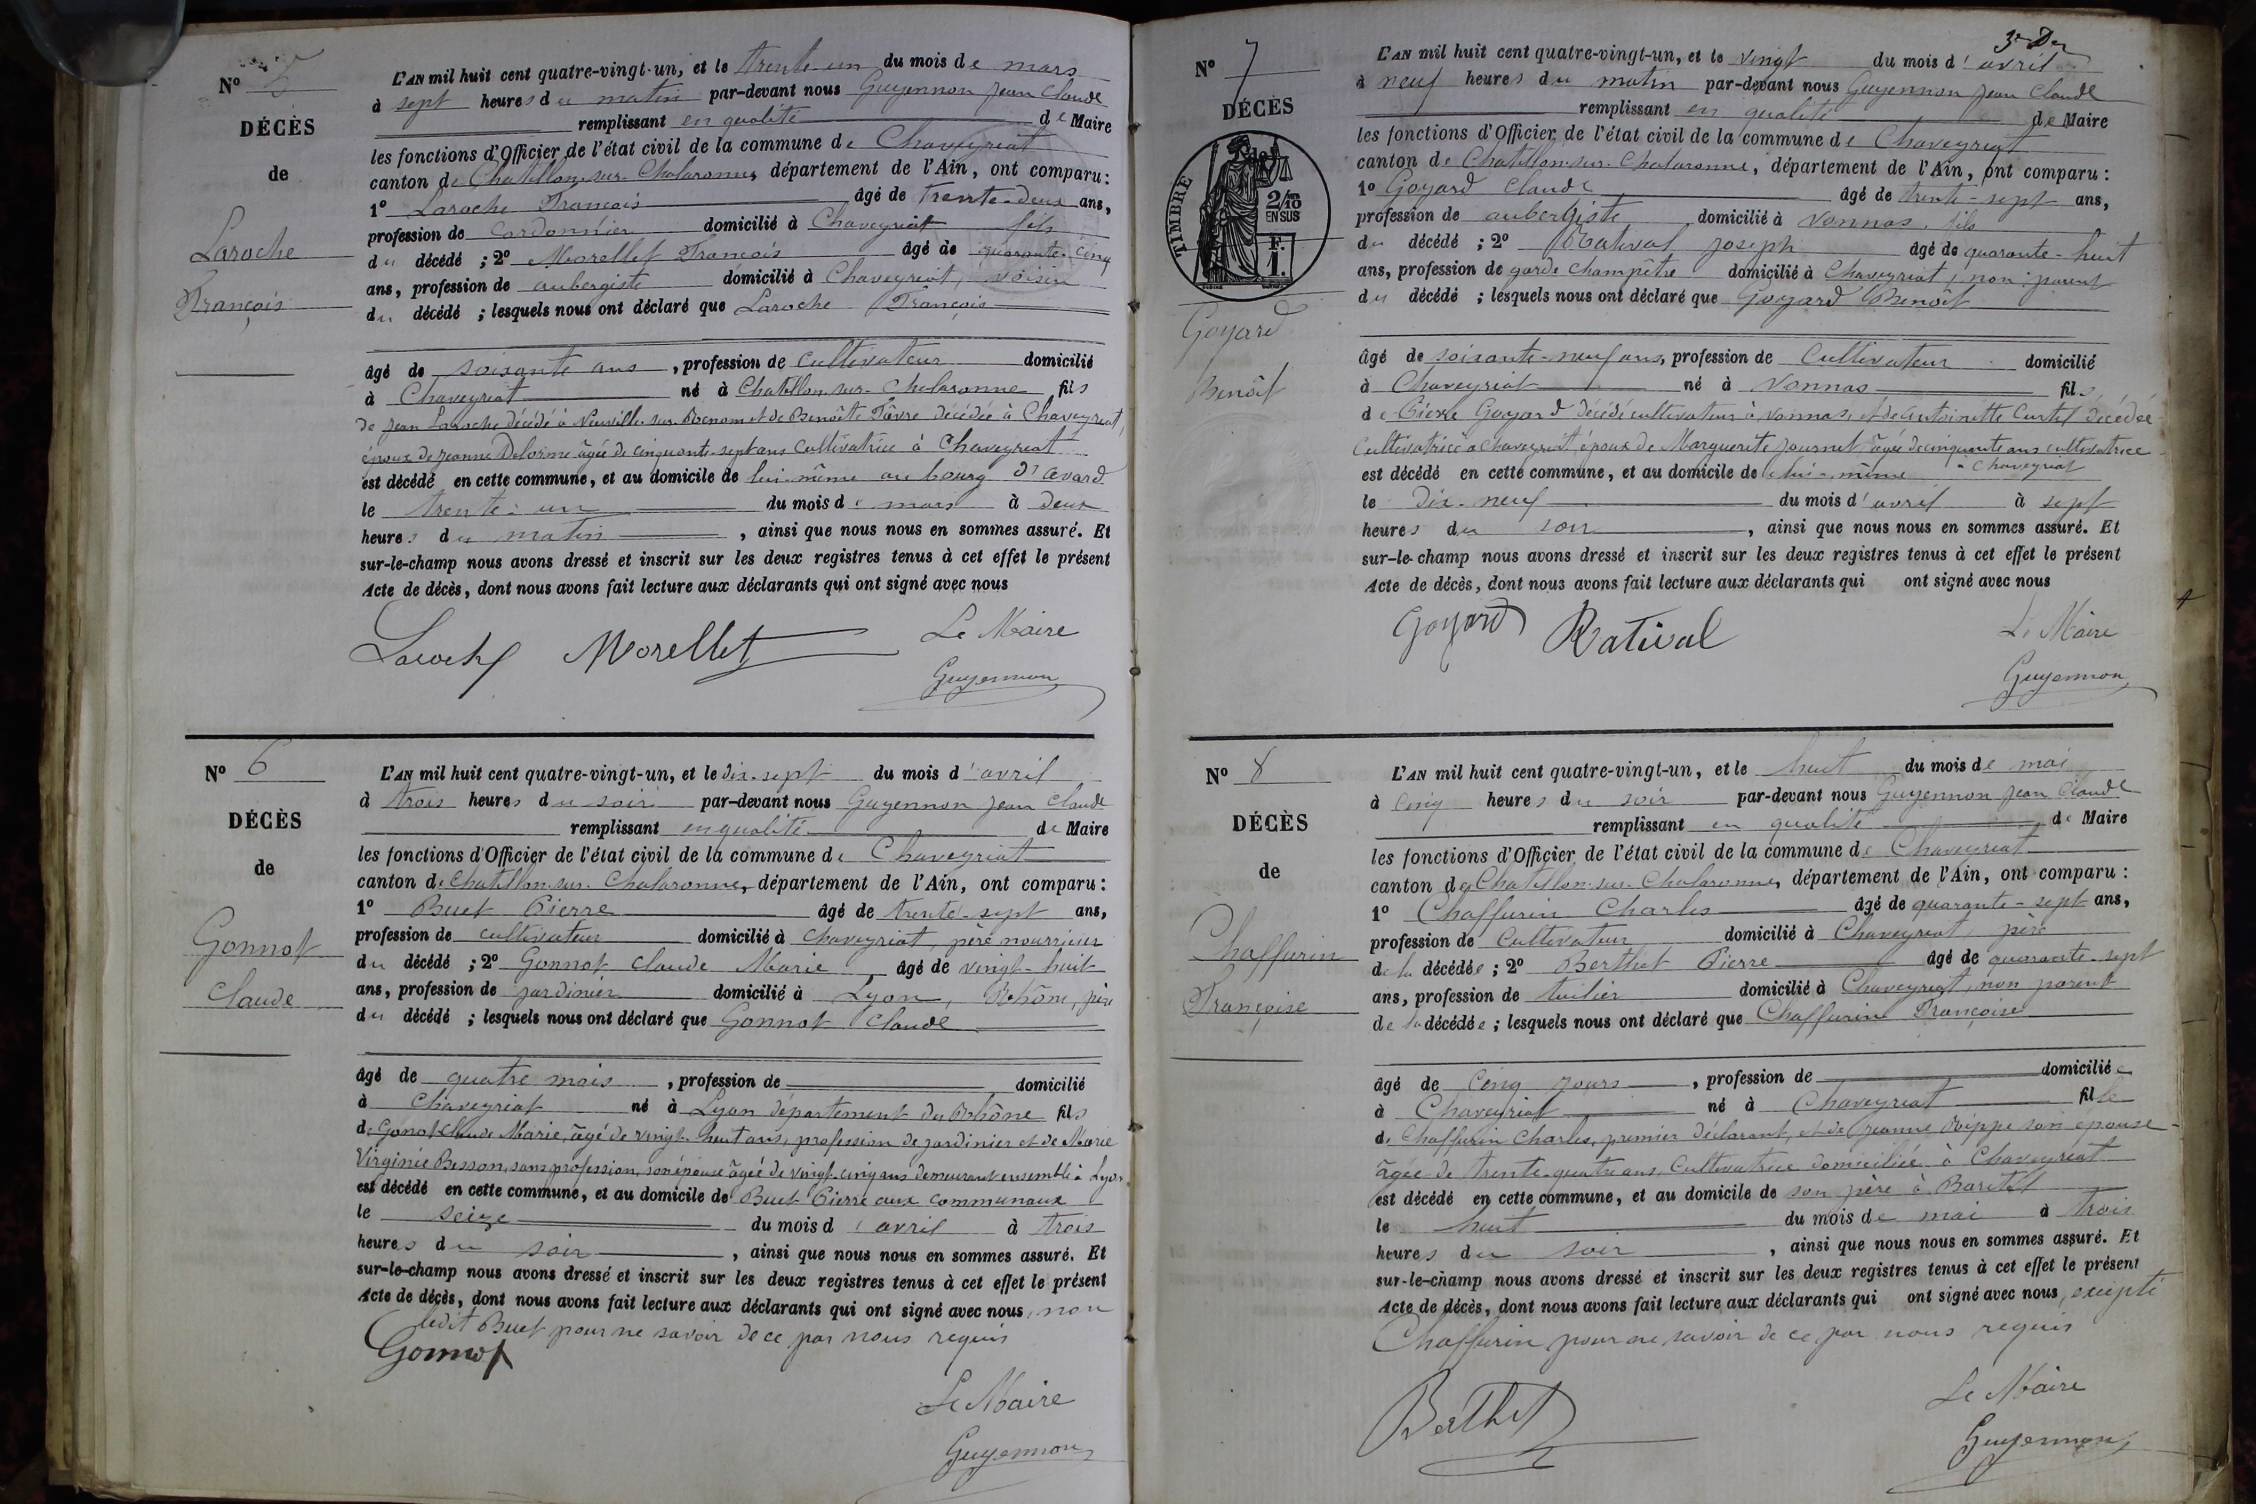 Nº 5
DÉCÈS
de
Laroche
François
L'AN mil huit cent quatre-vingt-un, et le trente-un du mois de mars
à sept heures du matin par-devant nous Guyennon Jean Claude
remplissant en qualité de Maire
les fonctions d'Officier de l'état civil de la commune de Chaveyriat
canton de Chatillon-sur-Chalaronne, département de l'Ain, ont comparu :
1º Laroche François âgé de trente-deux ans,
profession de cordonnier domicilié à Chaveyriat fils
du décédé ; 2º Morellet François âgé de quarante-cinq
ans, profession de aubergiste domicilié à Chaveyriat, voisin
du décédé ; lesquels nous ont déclaré que Laroche François
âgé de soixante ans, profession de cultivateur domicilié
à Chaveyriat né à Chatillon-sur-Chalaronne fils
de Jean Laroche décédé à Neuville-sur-Renom et de Benoîte Fâvre décédée à Chaveyriat,
époux de Jeanne Delorme âgée de cinquante-sept ans cultivatrice à Chaveyriat
est décédé en cette commune, et au domicile de lui-même au bourg d'avard
le trente-un du mois de mars à deux
heures du matin, ainsi que nous nous en sommes assuré. Et
sur-le-champ nous avons dressé et inscrit sur les deux registres tenus à cet effet le présent
Acte de décès, dont nous avons fait lecture aux déclarants qui ont signé avec nous
Laroche Morellet Le Maire
Guyennon
Nº 6
DÉCÈS
de
Gonnot
Claude
L'AN mil huit cent quatre-vingt-un, et le dix-sept du mois d'avril
à trois heures du soir par-devant nous Guyennon Jean Claude
remplissant en qualité de Maire
les fonctions d'Officier de l'état civil de la commune de Chaveyriat
canton de Chatillon-sur-Chalaronne, département de l'Ain, ont comparu :
1º Buet Pierre âgé de trente-sept ans,
profession de cultivateur domicilié à Chaveyriat, père nourricier
du décédé ; 2º Gonnot Claude Marie, âgé de vingt-huit
ans, profession de jardinier domicilié à Lyon, Rhône, père
du décédé ; lesquels nous ont déclaré que Gonnot Claude
âgé de quatre mois, profession de domicilié
à Chaveyriat né à Lyon département du Rhône fils
de Gonot Claude Marie, âgé de vingt-huit ans, profession de jardinier et de Marie
Virginie Besson, sans profession, son épouse âgée de vingt-cinq ans demeurant ensemble à Lyon
est décédé en cette commune, et au domicile de Buet Pierre aux communaux
le seize du mois d'avril à trois
heures du soir, ainsi que nous nous en sommes assuré. Et
sur-le-champ nous avons dressé et inscrit sur les deux registres tenus à cet effet le présent
Acte de décès, dont nous avons fait lecture aux déclarants qui ont signé avec nous, non
ledit Buet pour ne savoir de ce par nous requis
Gonnot
Le Maire
Guyennon
3e
Nº 7
DÉCÈS
TIMBRE
2/10
EN SUS
F.
1.
Goyard
Benoît
L'AN mil huit cent quatre-vingt-un, et le vingt du mois d'avril
à neuf heures du matin par-devant nous Guyennon Jean Claude
remplissant en qualité de Maire
les fonctions d'Officier de l'état civil de la commune de Chaveyriat
canton de Chatillon-sur-Chalaronne, département de l'Ain, ont comparu :
1º Goyard Claude âgé de trente-sept ans,
profession de aubergiste domicilié à Vonnas, fils
du décédé ; 2º Rativat Joseph âgé de quarante-huit
ans, profession de garde champêtre domicilié à Chaveyriat, non parent
du décédé ; lesquels nous ont déclaré que Goyard Benoît
âgé de soixante-neuf ans, profession de Cultivateur domicilié
à Chaveyriat né à Vonnas fils
de Pierre Goyard décédé cultivateur à Vonnas, et de Antoinette Curtet décédée
cultivatrice à Chaveyriat époux de Marguerite Journet âgée de cinquante ans cultivatrice
à Chaveyriat
est décédé en cette commune, et au domicile de lui-même
le dix-neuf du mois d'avril à sept
heures du soir, ainsi que nous nous en sommes assuré. Et
sur-le-champ nous avons dressé et inscrit sur les deux registres tenus à cet effet le présent
Acte de décès, dont nous avons fait lecture aux déclarants qui ont signé avec nous
Goyard Rativat Le Maire
Guyennon
Nº 8
DÉCÈS
de
Chaffurin
Françoise
L'AN mil huit cent quatre-vingt-un, et le huit du mois de mai
à cinq heures du soir par-devant nous Guyennon Jean Claude
remplissant en qualité de Maire
les fonctions d'Officier de l'état civil de la commune de Chaveyriat
canton de Chatillon-sur-Chalaronne, département de l'Ain, ont comparu :
1º Chaffurin Charles âgé de quarante-sept ans,
profession de Cultivateur domicilié à Chaveyriat, père
de la décédée ; 2º Berthet Pierre âgé de quarante-sept
ans, profession de tuilier domicilié à Chaveyriat, non parent
de la décédée ; lesquels nous ont déclaré que Chaffurin Françoise
âgé de Cinq jours, profession de domiciliée
à Chaveyriat né à Chaveyriat fille
de Chaffurin Charles, premier déclarant, et de Jeanne Rippe son épouse
âgée de trente-quatre ans, Cultivatrice domiciliée à Chaveyriat
est décédé en cette commune, et au domicile de son père à Baritel
le huit du mois de mai à trois
heures du soir, ainsi que nous nous en sommes assuré. Et
sur-le-champ nous avons dressé et inscrit sur les deux registres tenus à cet effet le présent
Acte de décès, dont nous avons fait lecture aux déclarants qui ont signé avec nous, excepté
Chaffurin pour ne savoir de ce par nous requis
Berthet
Le Maire
Guyennon